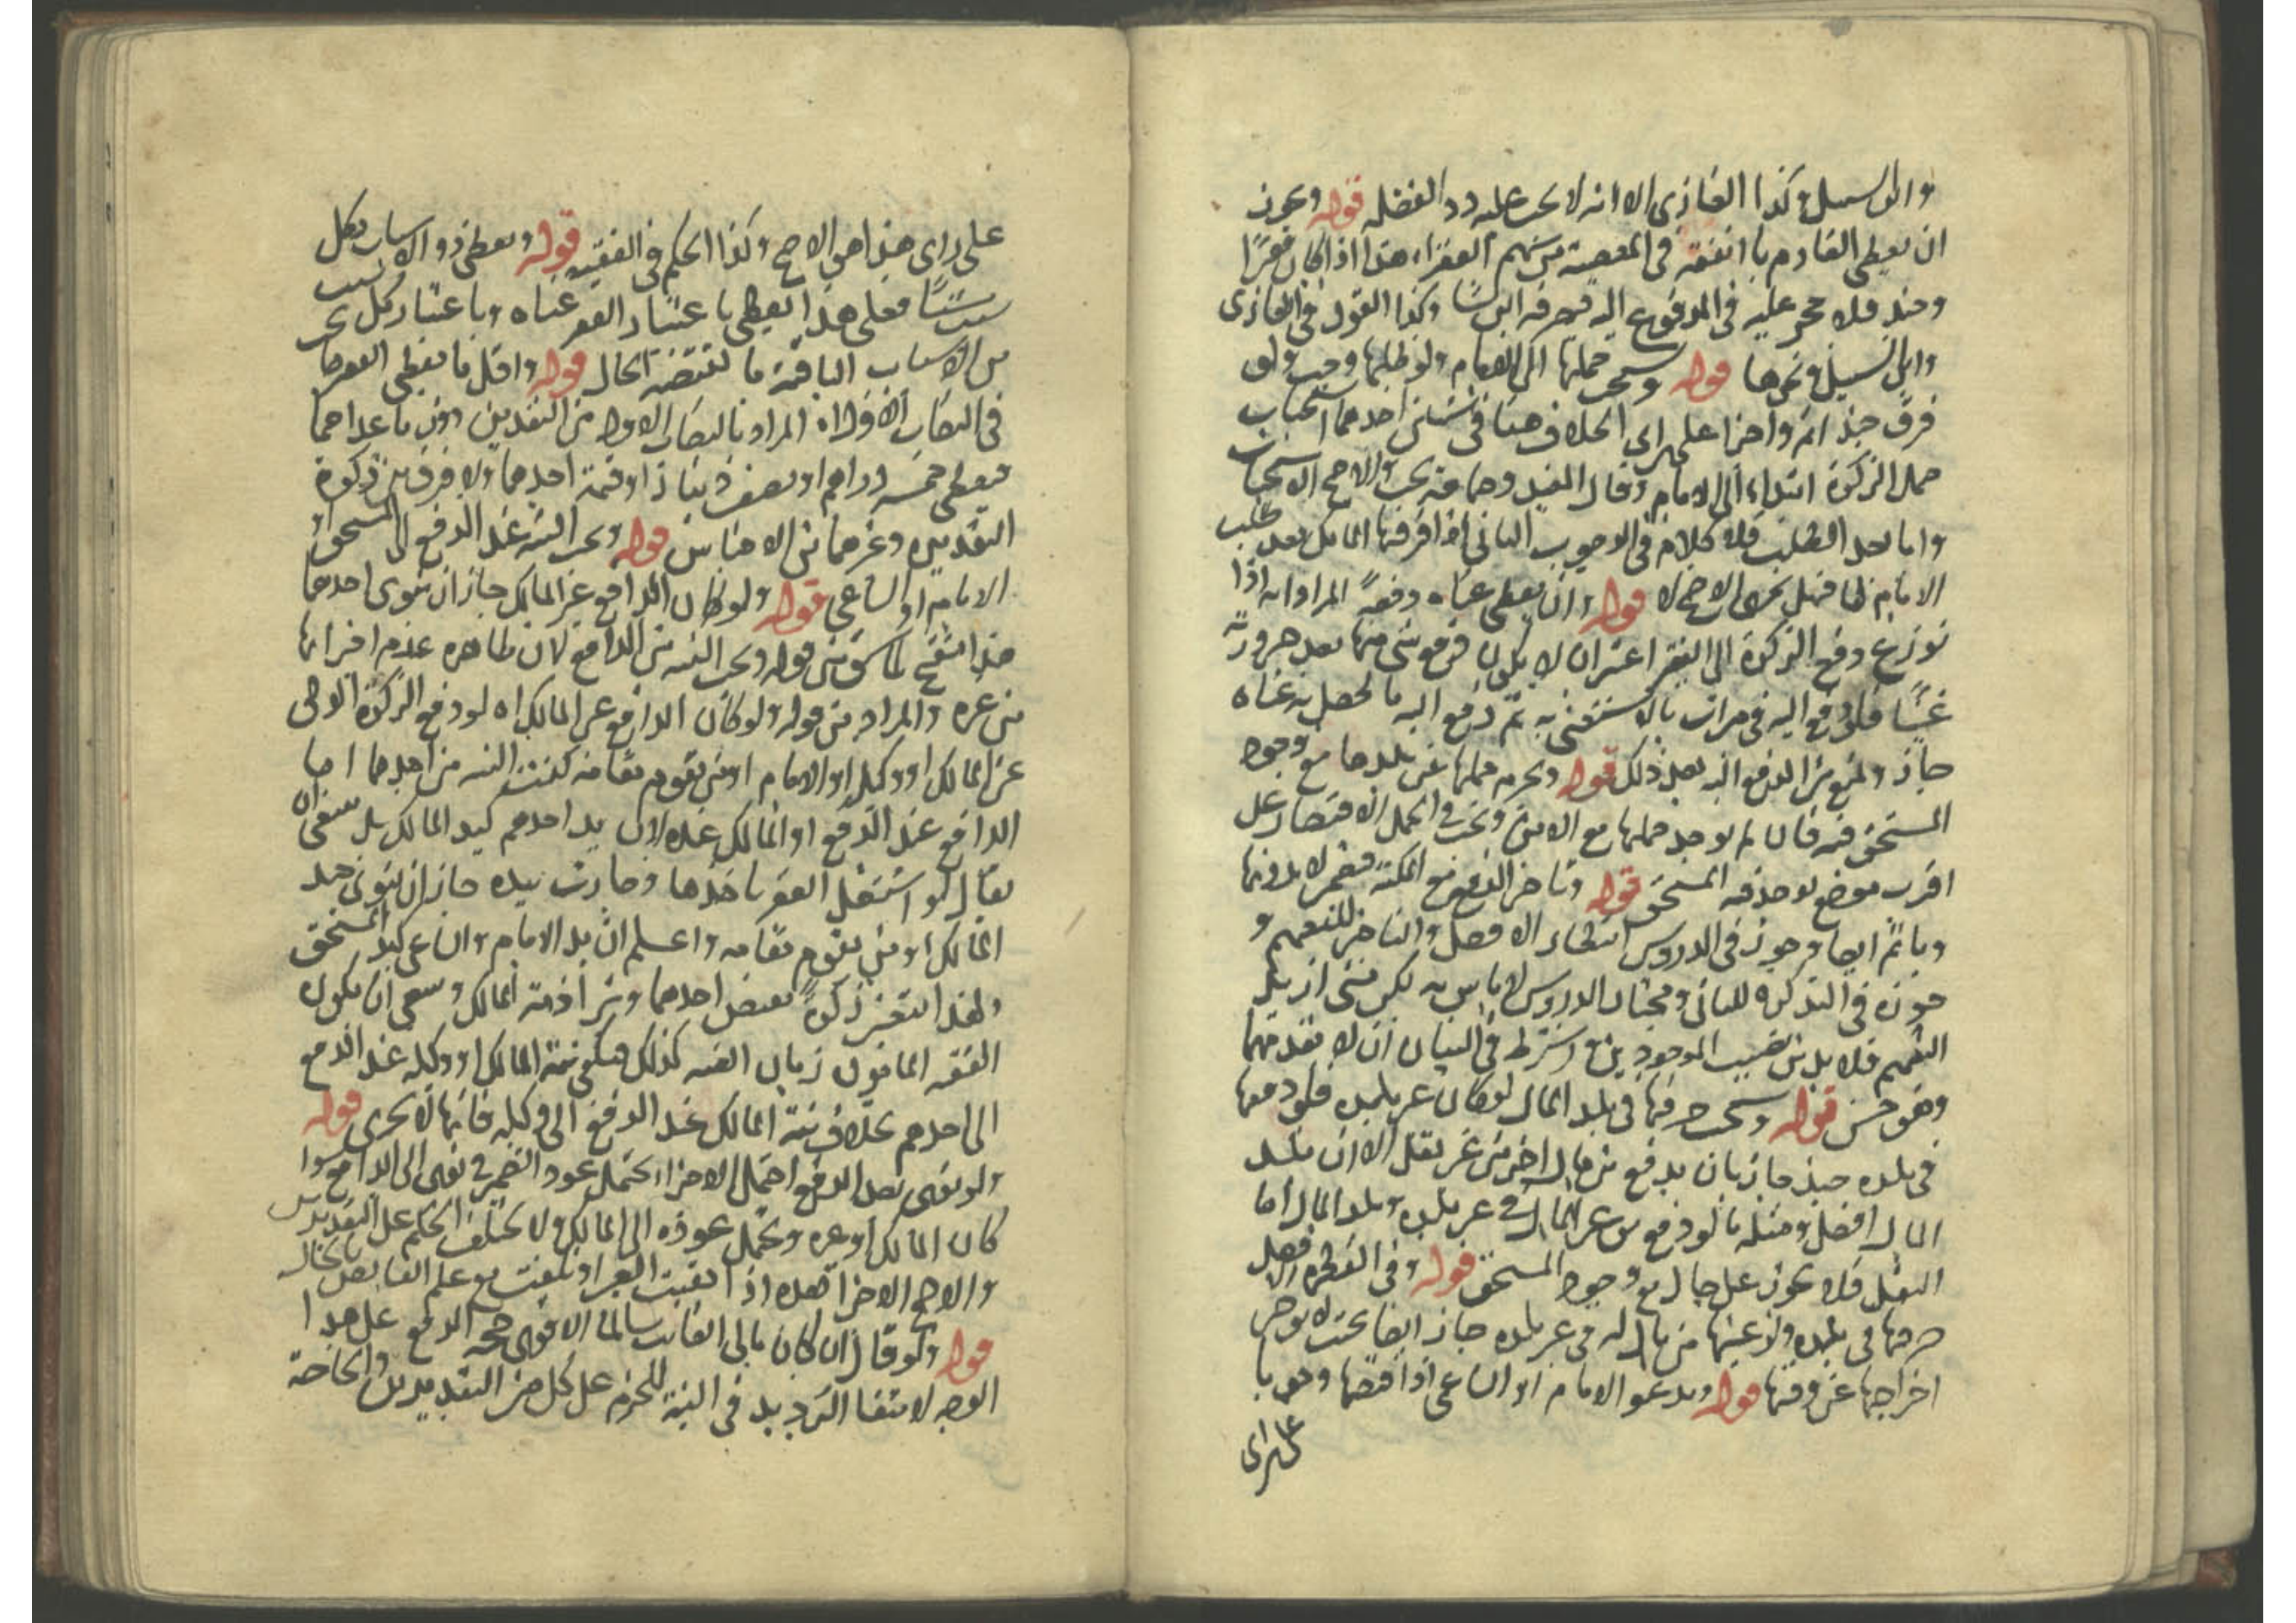 وابن السبيل وكذا الغازى الا انه لا يجب عليه رد الفضله قوله ويجوز
ان يعطى الغارم ما انفقه فى المعصية من سهم الفقراء هذا اذا كان فقيرًا
وحينئذ فلا حجر عليه فى المدفوع اليه يصرفه اين شا وكذا القول فى الغازى
وابن السبيل ونحوها قوله ويستحب حملها الى الامام ولو طلبها وجب ولو
فرق حينئذ اثم واجزا على راى الخلاف هنا فى شيئين احدهما استحباب
حمل الزكوة ابتداء الى الامام وقال المفيد وجماعة يجب والاصح الاستحباب
واما بعد الطلب فلا كلام فى الوجوب الثانى اذا فرقها المالك بعد طلب
الامام لها فهل يجزى الاصح لا قوله وان يعطى غناه دفعةً المراد انه اذا
توزع دفع الزكوة الى الفقير اعتبر ان لا يكون دفع شى منها بعد صيرورته
غنيًّا فلو دفع اليه فى مرات ما لا يستغنى به ثم دفع اليه ما يحصل به غناه
جاز ولمنع من الدفع اليه بعد ذلك قوله ويحرم حملها عن بلدها مع وجود
المستحق فيه فان لم يوجد حملها مع الامن ويجب فى الحمل الاقتصار على
اقرب موضع يوجد فيه المستحق قوله وتاخير الدفع مع المكنة فيضمن لا بدونها
وياثم ايضا وجوز فى الدروس انتظار الافضل والتاخير للتعميم و
جوزه فى التذكرة للثانى ومختار الدروس لا باس به لكن متى اريد
التعميم فلا بد من نصيب الموجودين واشترط فى البيان ان لا تعد منهما
وهو حسن قوله ويستحب صرفها فى بلد المال لو كان غير بلده فلو دفعها
فى بلده حينئذ جاز بان يدفع من مال اخر من غير نقل الا ان بلد
المال افضل ومثله ما لو دفع من غير المال فى غير بلده وبلد المال اما
النقل فلا يجوز على حال مع وجود المستحق قوله وفى الفطرة الافضل
صرفها فى بلده ولو عينها من مال له فى غير بلده جاز ايضا بحيث لا يوخر
اخراجها عن وقتها قوله ويدعو الامام او الساعى اذا قبضها وجوبا
على راى
على راى هذا هو الاصح وكذا الحكم فى الفقيه قوله ويعطى ذو الاسباب بكل سبب
سبب شيئًا فعلى هذا يعطى باعتبار الفقر غناه وباعتبار كل
من الاسباب الباقية ما تقتضيه الحال قوله واقل ما يعطى الفقير ما يجب
فى النصاب الاول المراد بالنصاب الاول من النقدين دون ما عداهما
فيعطى خمسة دراهم او نصف دينار او قيمة احدهما ولا فرق بين زكوة
النقدين وغيرهما من الاجناس قوله ويجب النية عند الدفع الى المستحق او
الامام او الساعى قوله ولو كان الدافع غير المالك جاز ان ينوى احدهما
هذا تنقيح لما سبق من قوله ويجب النية من الدافع لان ظاهره عدم اجزائها
من غيره والمراد من قوله ولو كان الدافع غير المالك انه لو دفع الزكوة الولى
عن المالك او وكيله او الامام او من يقوم مقامه كفت النية من احدهما اما
الدافع عند الدفع او المالك عنده لان يد احدهم كيد المالك بل ينبغى ان
يقال لو استقل الفقير باخذها وصارت بيده جاز ان ينوى حينئذ
المالك او من يقوم مقامه واعلم ان يد الامام والساعى كيد المستحق
ولهذا تتعين زكوةً بقبض احدهما وتبرأ ذمة المالك وينبغى ان يكون
الفقيه المامون زمان الغيبة كذلك فيكفى نية المالك او وكيله عند الدفع
الى احدهم بخلاف نية المالك عند الدفع الى وكيله فانها لا يجزى قوله
ولو نوى بعد الدفع احتمل الاجزا يحتمل عود الضمير فى نوى الى الدافع سوا
كان المالك او غيره ويحتمل عوده الى المالك ولا يختلف الحكم على التقديرين
والاصح الاجزا بعده اذا بقيت العين او تلفت مع علم القابض بالحال
قوله ولو قال ان كان مالى الغائب سالما الاقوى صحة الدفع على هذا
الوجه لانتفا الترديد فى النية للجزم على كل من التقديرين والحاجة